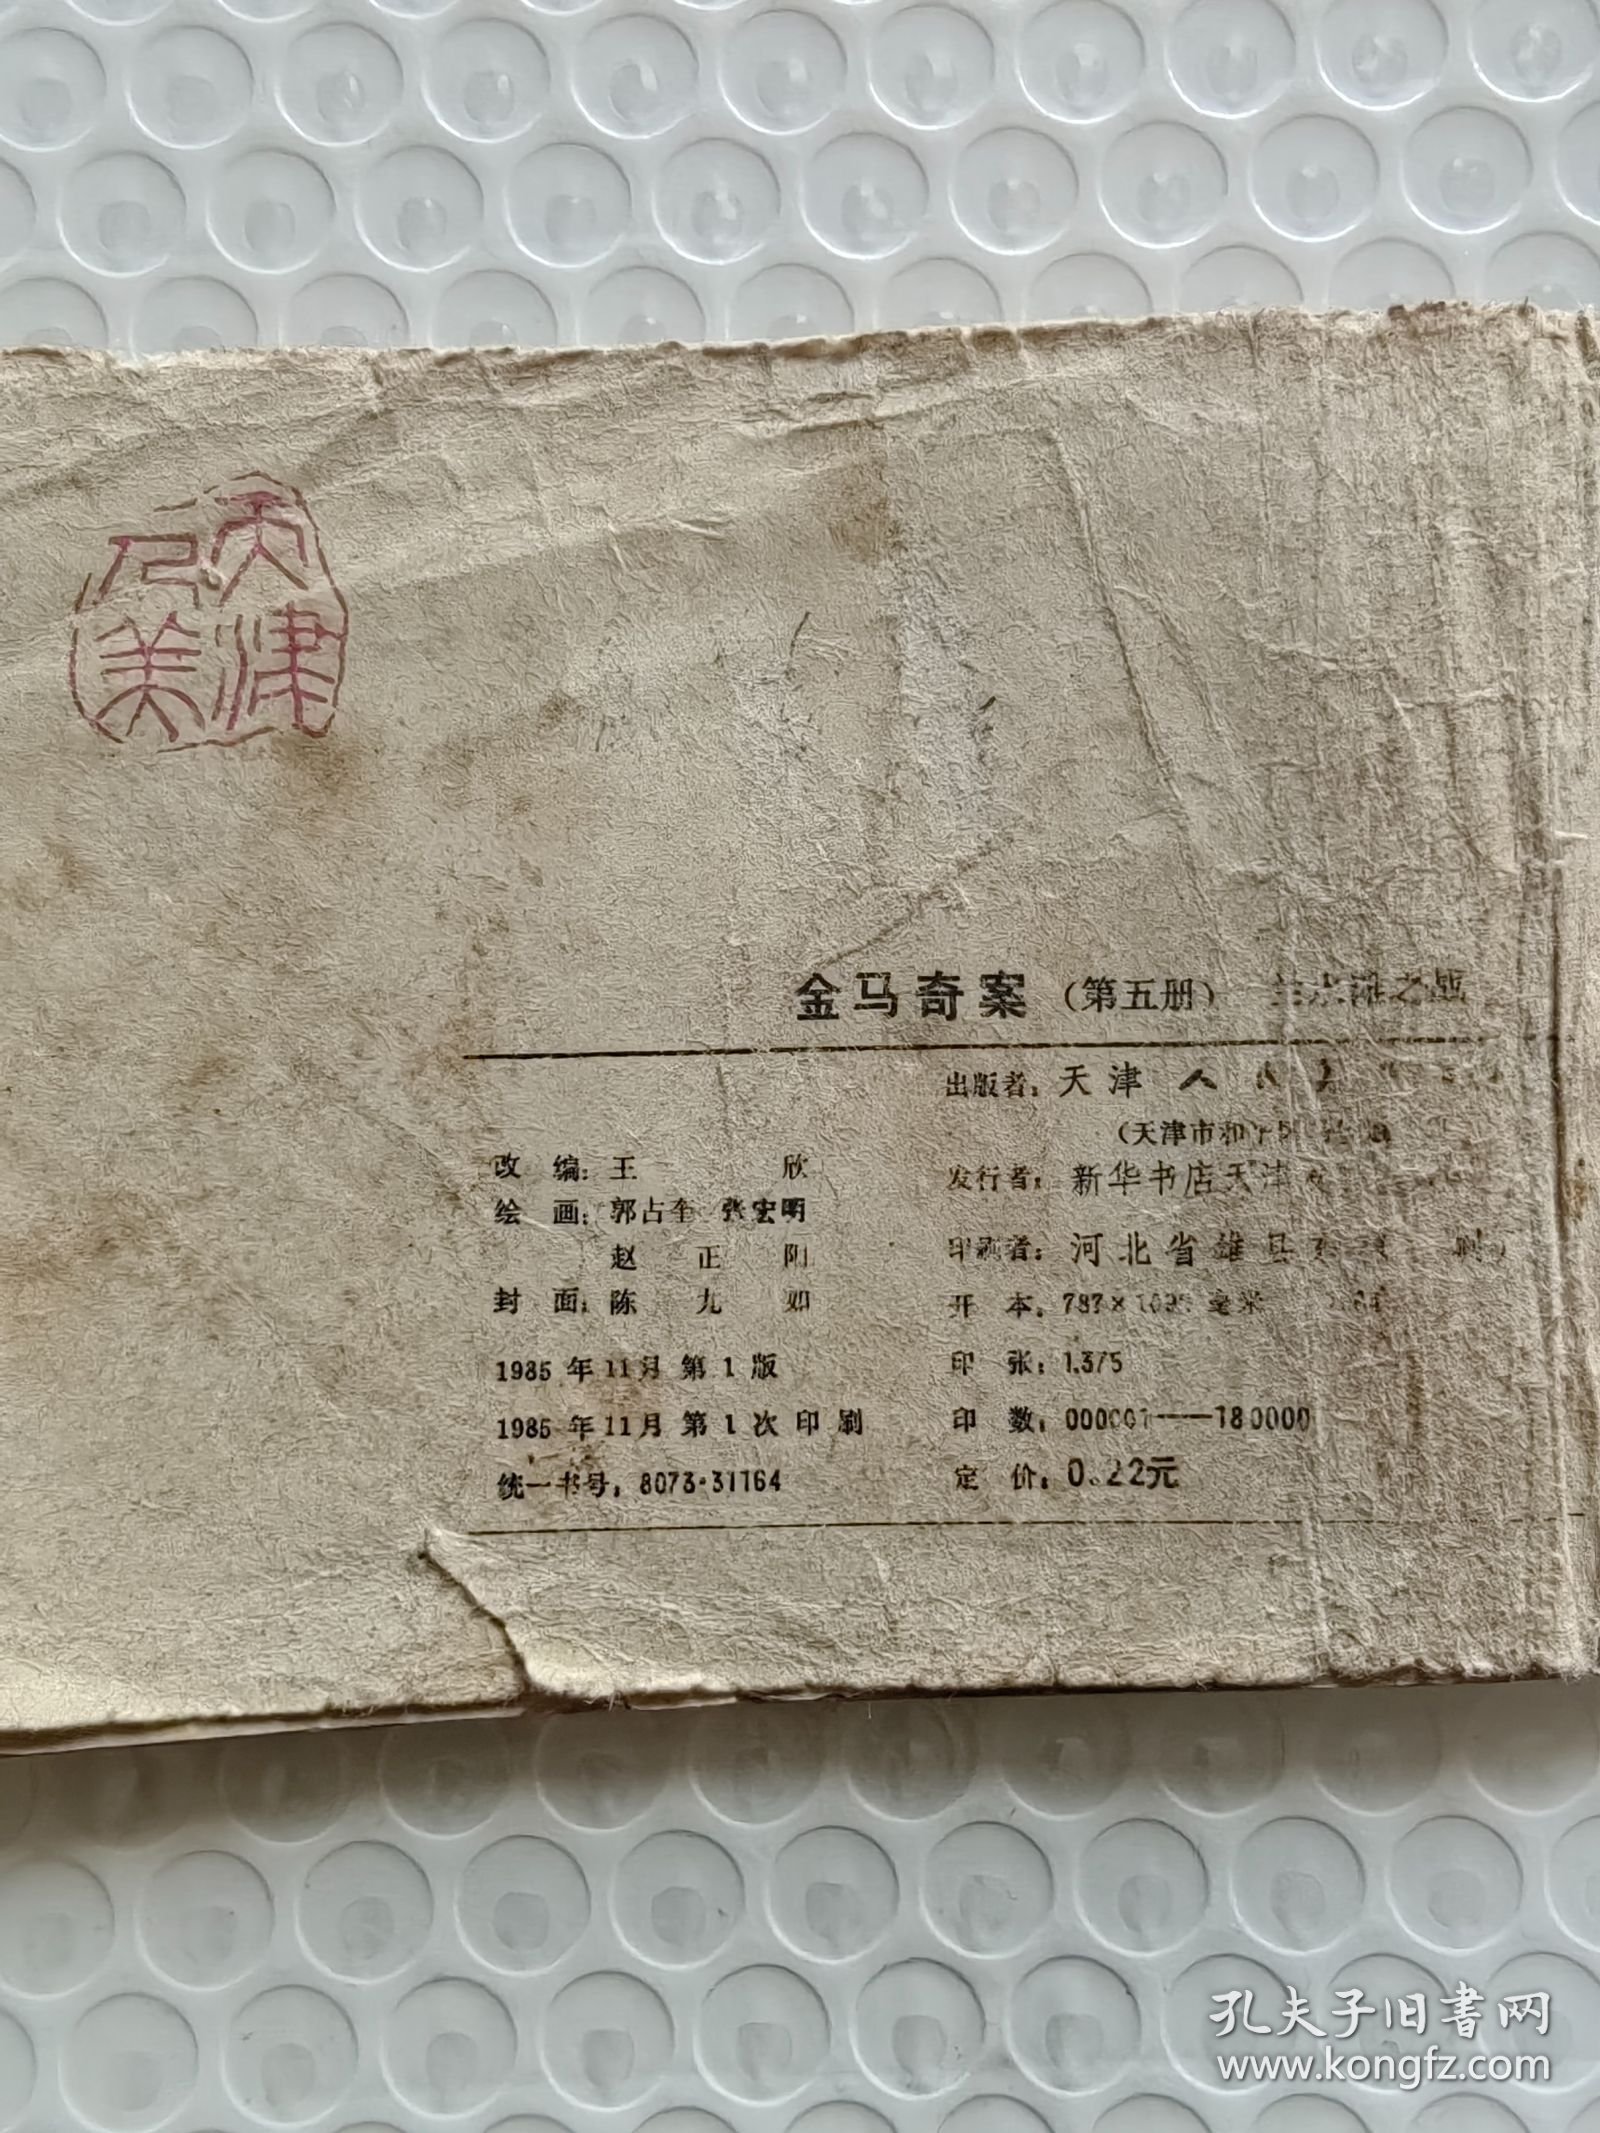 天津
人美
金马奇案（第五册） 之战
出版者：天津人
（天津市和
改 编：王 欣
发行者：新华书店天津
绘 画：郭占奎 张宏明
赵 正 阳
印刷者：河北省雄县
封 面：陈 九 如
开 本：787×1092毫米
1985年11月第1版
印 张：1.375
1985年11月第1次印刷
印 数：000001——180000
统一书号：8073·31164
定 价：0.22元
孔夫子旧书网
www.kongfz.com